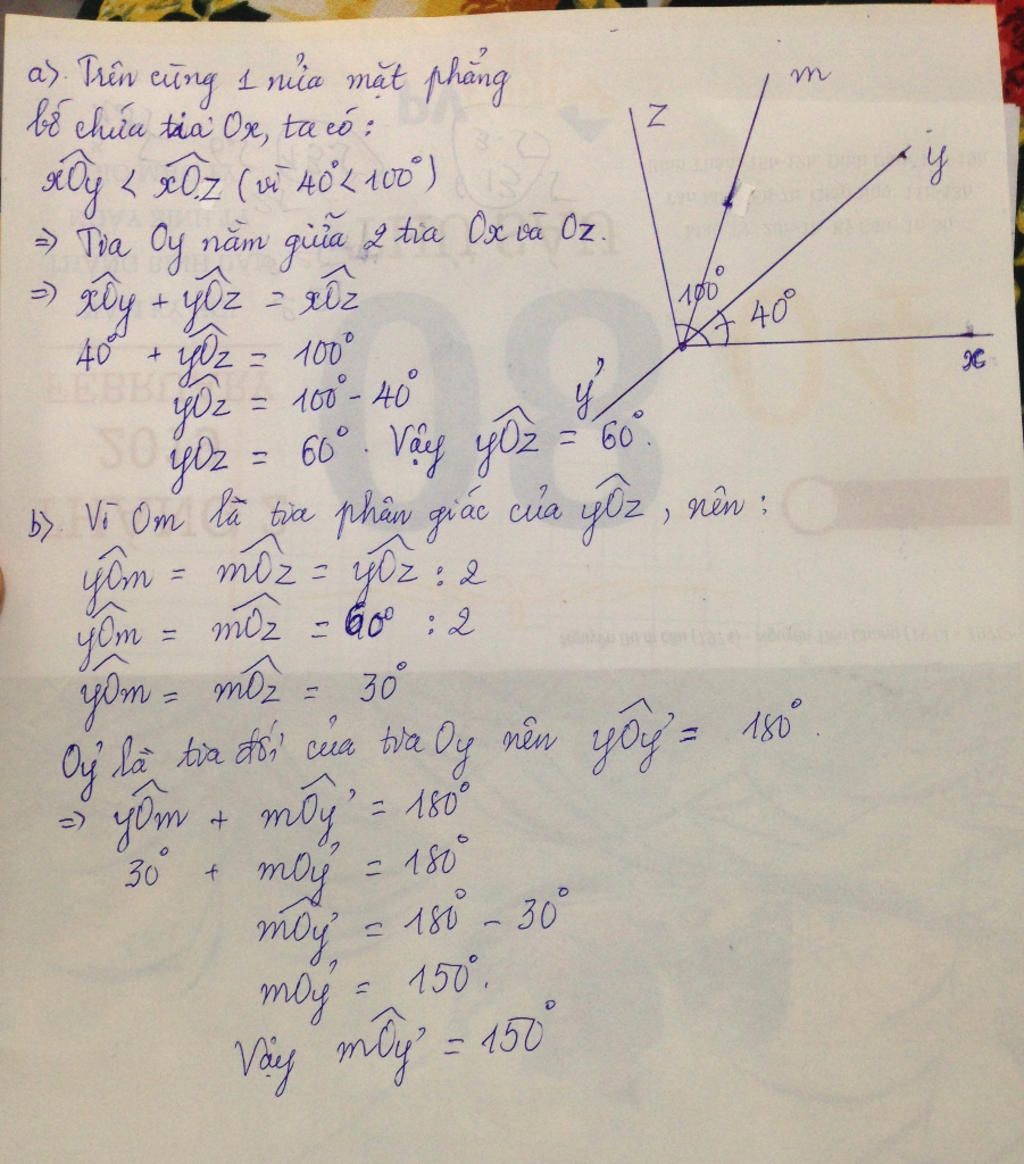 a). Trên cùng 1 nửa mặt phẳng
bờ chứa tia Ox, ta có:
xÔy < xÔz (vì 40° < 100°)
=> Tia Oy nằm giữa 2 tia Ox và Oz.
=> xÔy + yÔz = xÔz
40° + yÔz = 100°
yÔz = 100° - 40°
yOz = 60°. Vậy yÔz = 60°.
z
m
y
100°
40°
x
y'
b). Vì Om là tia phân giác của yÔz, nên:
yÔm = mÔz = yÔz : 2
yÔm = mÔz = 60° : 2
yÔm = mÔz = 30°
Oy' là tia đối của tia Oy nên yÔy' = 180°.
=> yÔm + mÔy' = 180°
30° + mOy' = 180°
mÔy' = 180° - 30°
mOy' = 150°.
Vậy mÔy' = 150°
08